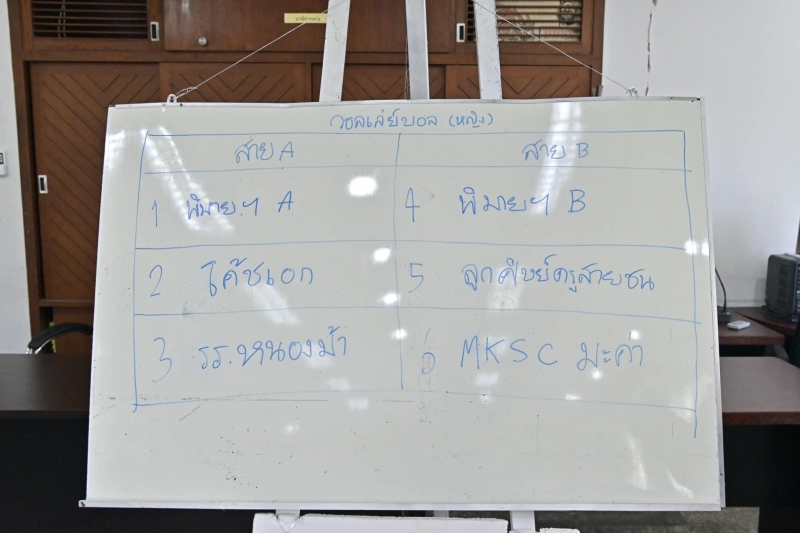 วอลเล่ย์บอล (หญิง)
สาย A
สาย B
1 พิมายฯ A
4 พิมายฯ B
2 โค้ชเอก
5 ลูกศิษย์ครูสายชน
3 รร.หนองม้า
6 MKSC มะค่า